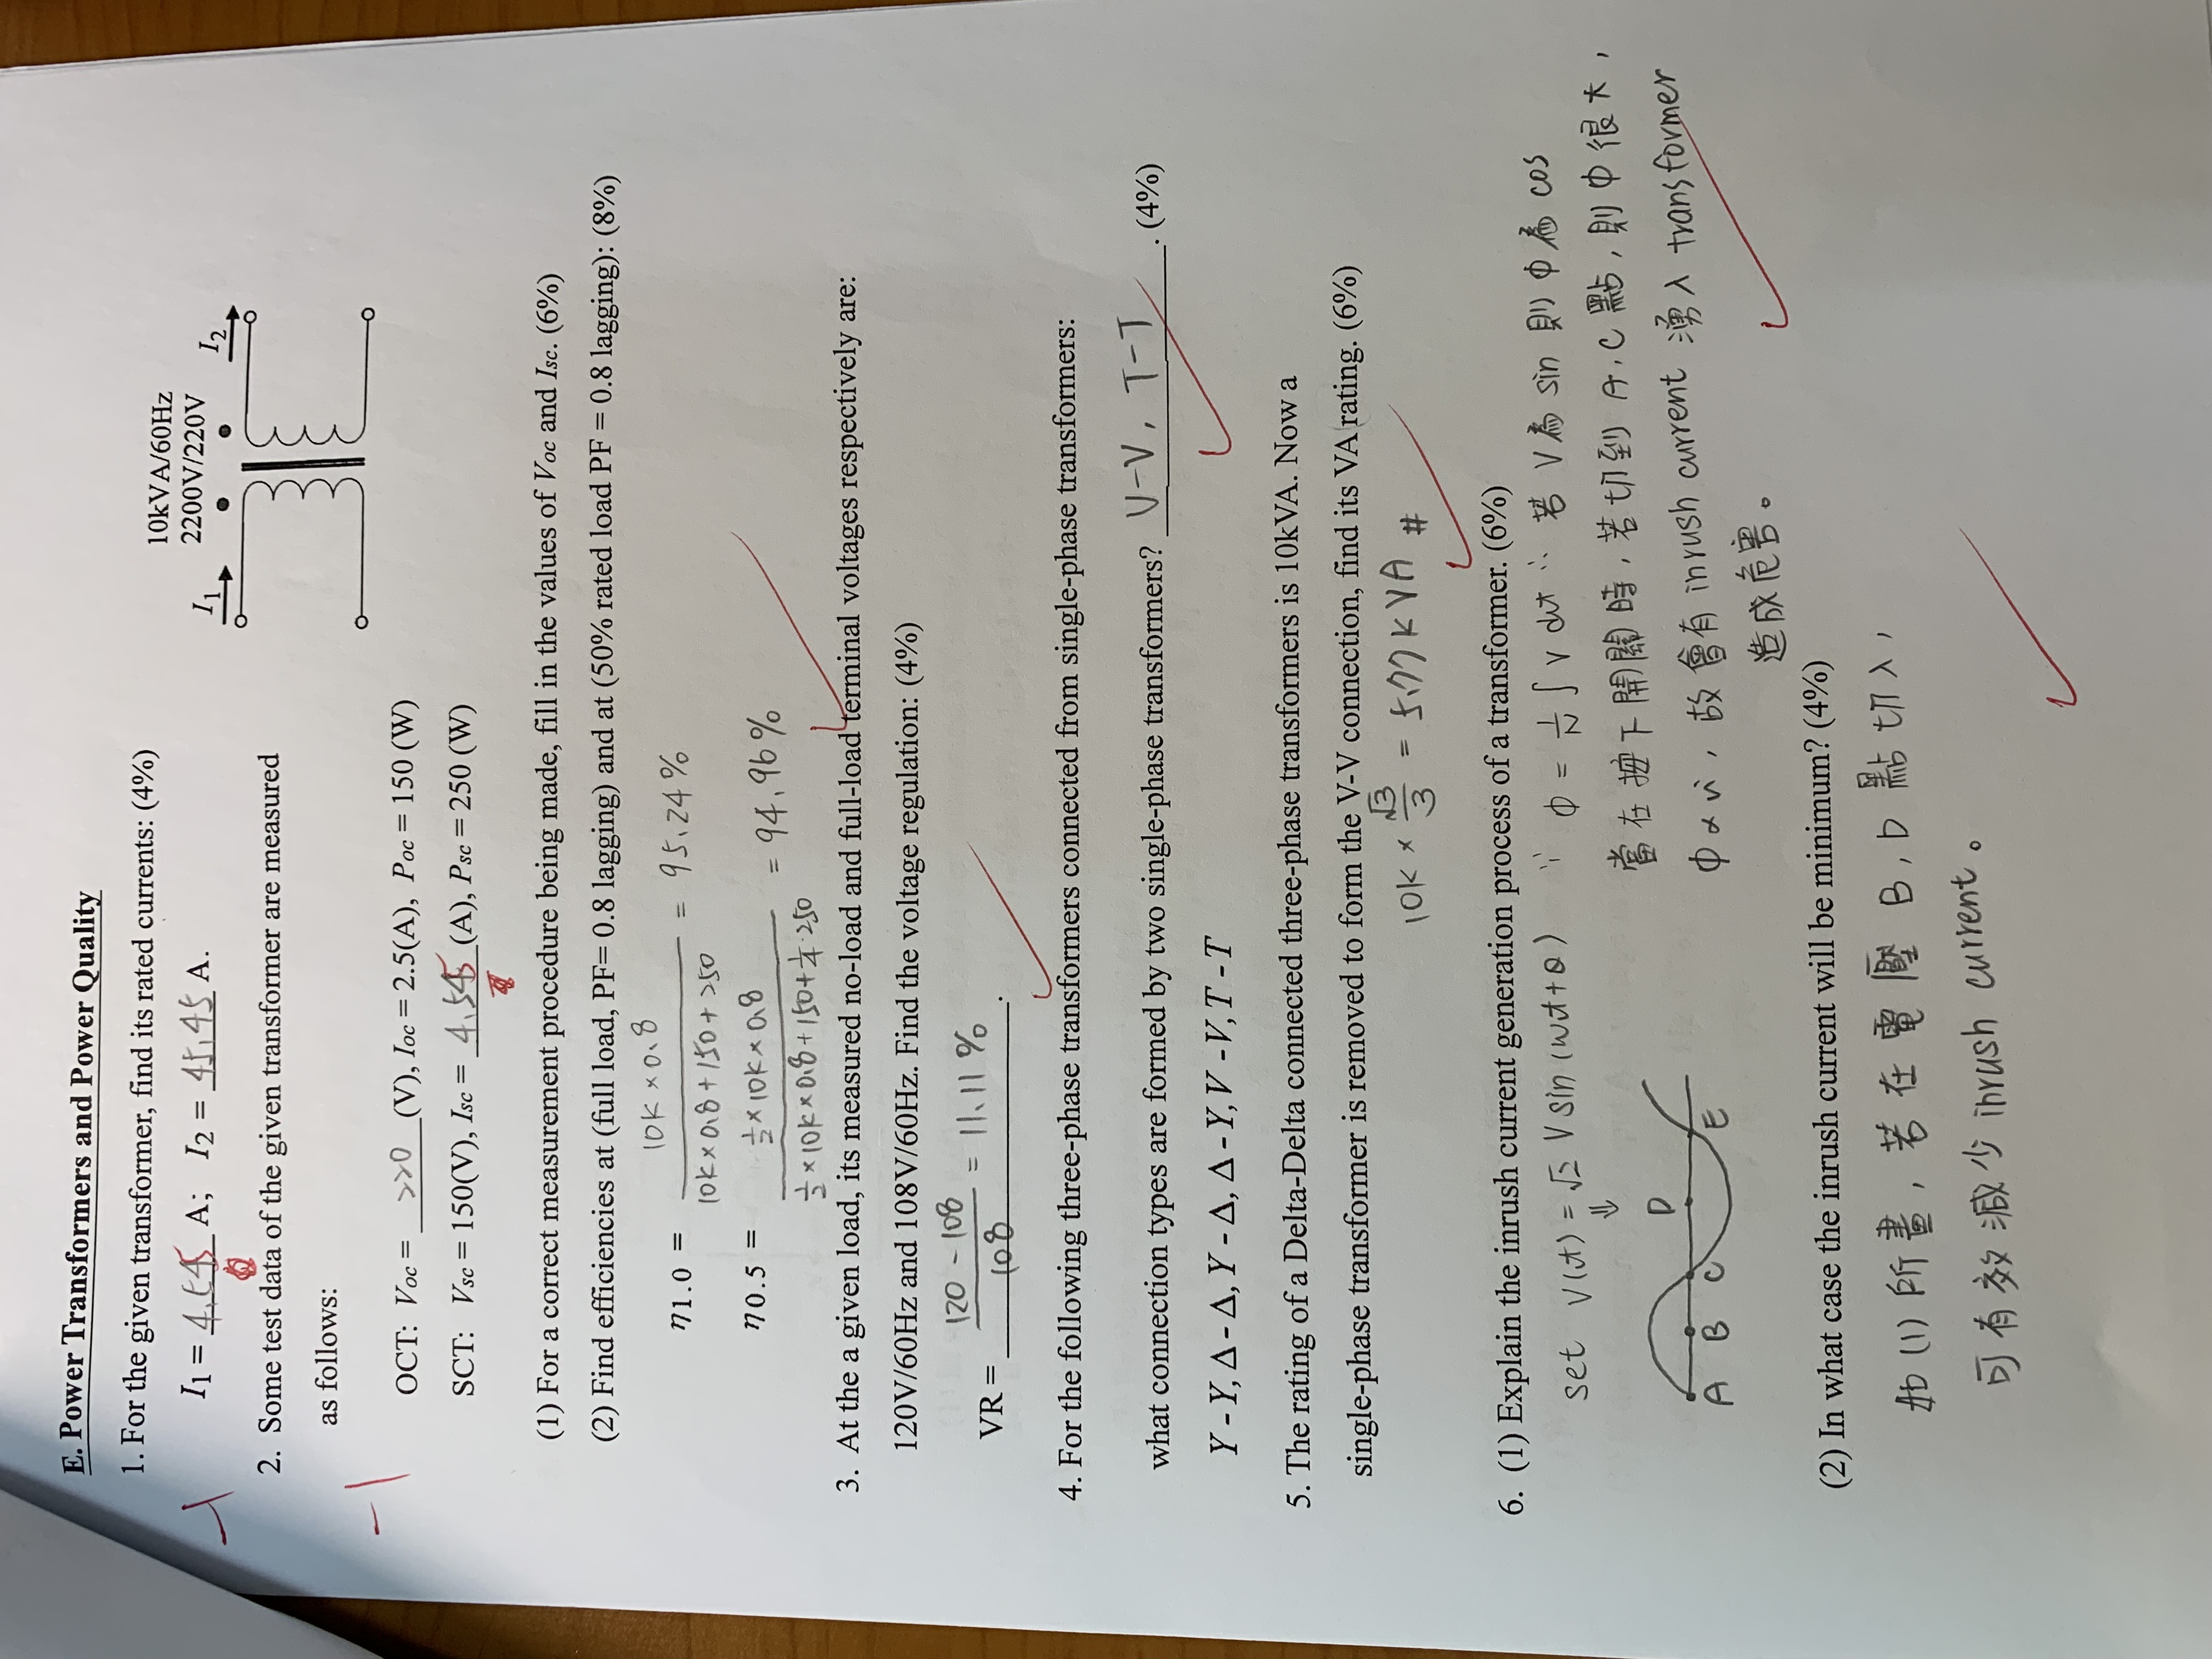 E. Power Transformers and Power Quality
1. For the given transformer, find its rated currents: (4%)
10kVA/60Hz
2200V/220V
I1 = 4.545 A; I2 = 45.45 A.
I1
I2
-1
2. Some test data of the given transformer are measured
as follows:
-1
OCT: Voc = 220 (V), Ioc = 2.5(A), Poc = 150 (W)
SCT: Vsc = 150(V), Isc = 4.545 (A), Psc = 250 (W)
(1) For a correct measurement procedure being made, fill in the values of Voc and Isc. (6%)
(2) Find efficiencies at (full load, PF= 0.8 lagging) and at (50% rated load PF = 0.8 lagging): (8%)
η1.0 = 10k × 0.8 / 10k × 0.8 + 150 + 250 = 95.24%
η0.5 = 1/2 × 10k × 0.8 / 1/2 × 10k × 0.8 + 150 + 1/4 · 250 = 94.96%
3. At the a given load, its measured no-load and full-load terminal voltages respectively are:
120V/60Hz and 108V/60Hz. Find the voltage regulation: (4%)
VR = 120 - 108 / 108 = 11.11 % .
4. For the following three-phase transformers connected from single-phase transformers:
what connection types are formed by two single-phase transformers? V-V, T-T . (4%)
Y - Y, Δ - Δ, Y - Δ, Δ - Y, V - V, T - T
5. The rating of a Delta-Delta connected three-phase transformers is 10kVA. Now a
single-phase transformer is removed to form the V-V connection, find its VA rating. (6%)
10k × √3/3 = 5.77 kVA #
6. (1) Explain the inrush current generation process of a transformer. (6%)
set v(t) = √2 V sin (wt+θ) ∵ ϕ = 1/N ∫ v dt ∴ 若 V為 sin 則 ϕ 為 cos
⇓
當在按下開關時,若切到 A,C 點,則 ϕ 很大,
A B C D E
ϕ ∝ i , 故會有 inrush current 湧入 transformer
造成危害。
(2) In what case the inrush current will be minimum? (4%)
如 (1) 所畫,若在電壓 B, D 點切入,
可有效減少 inrush current。